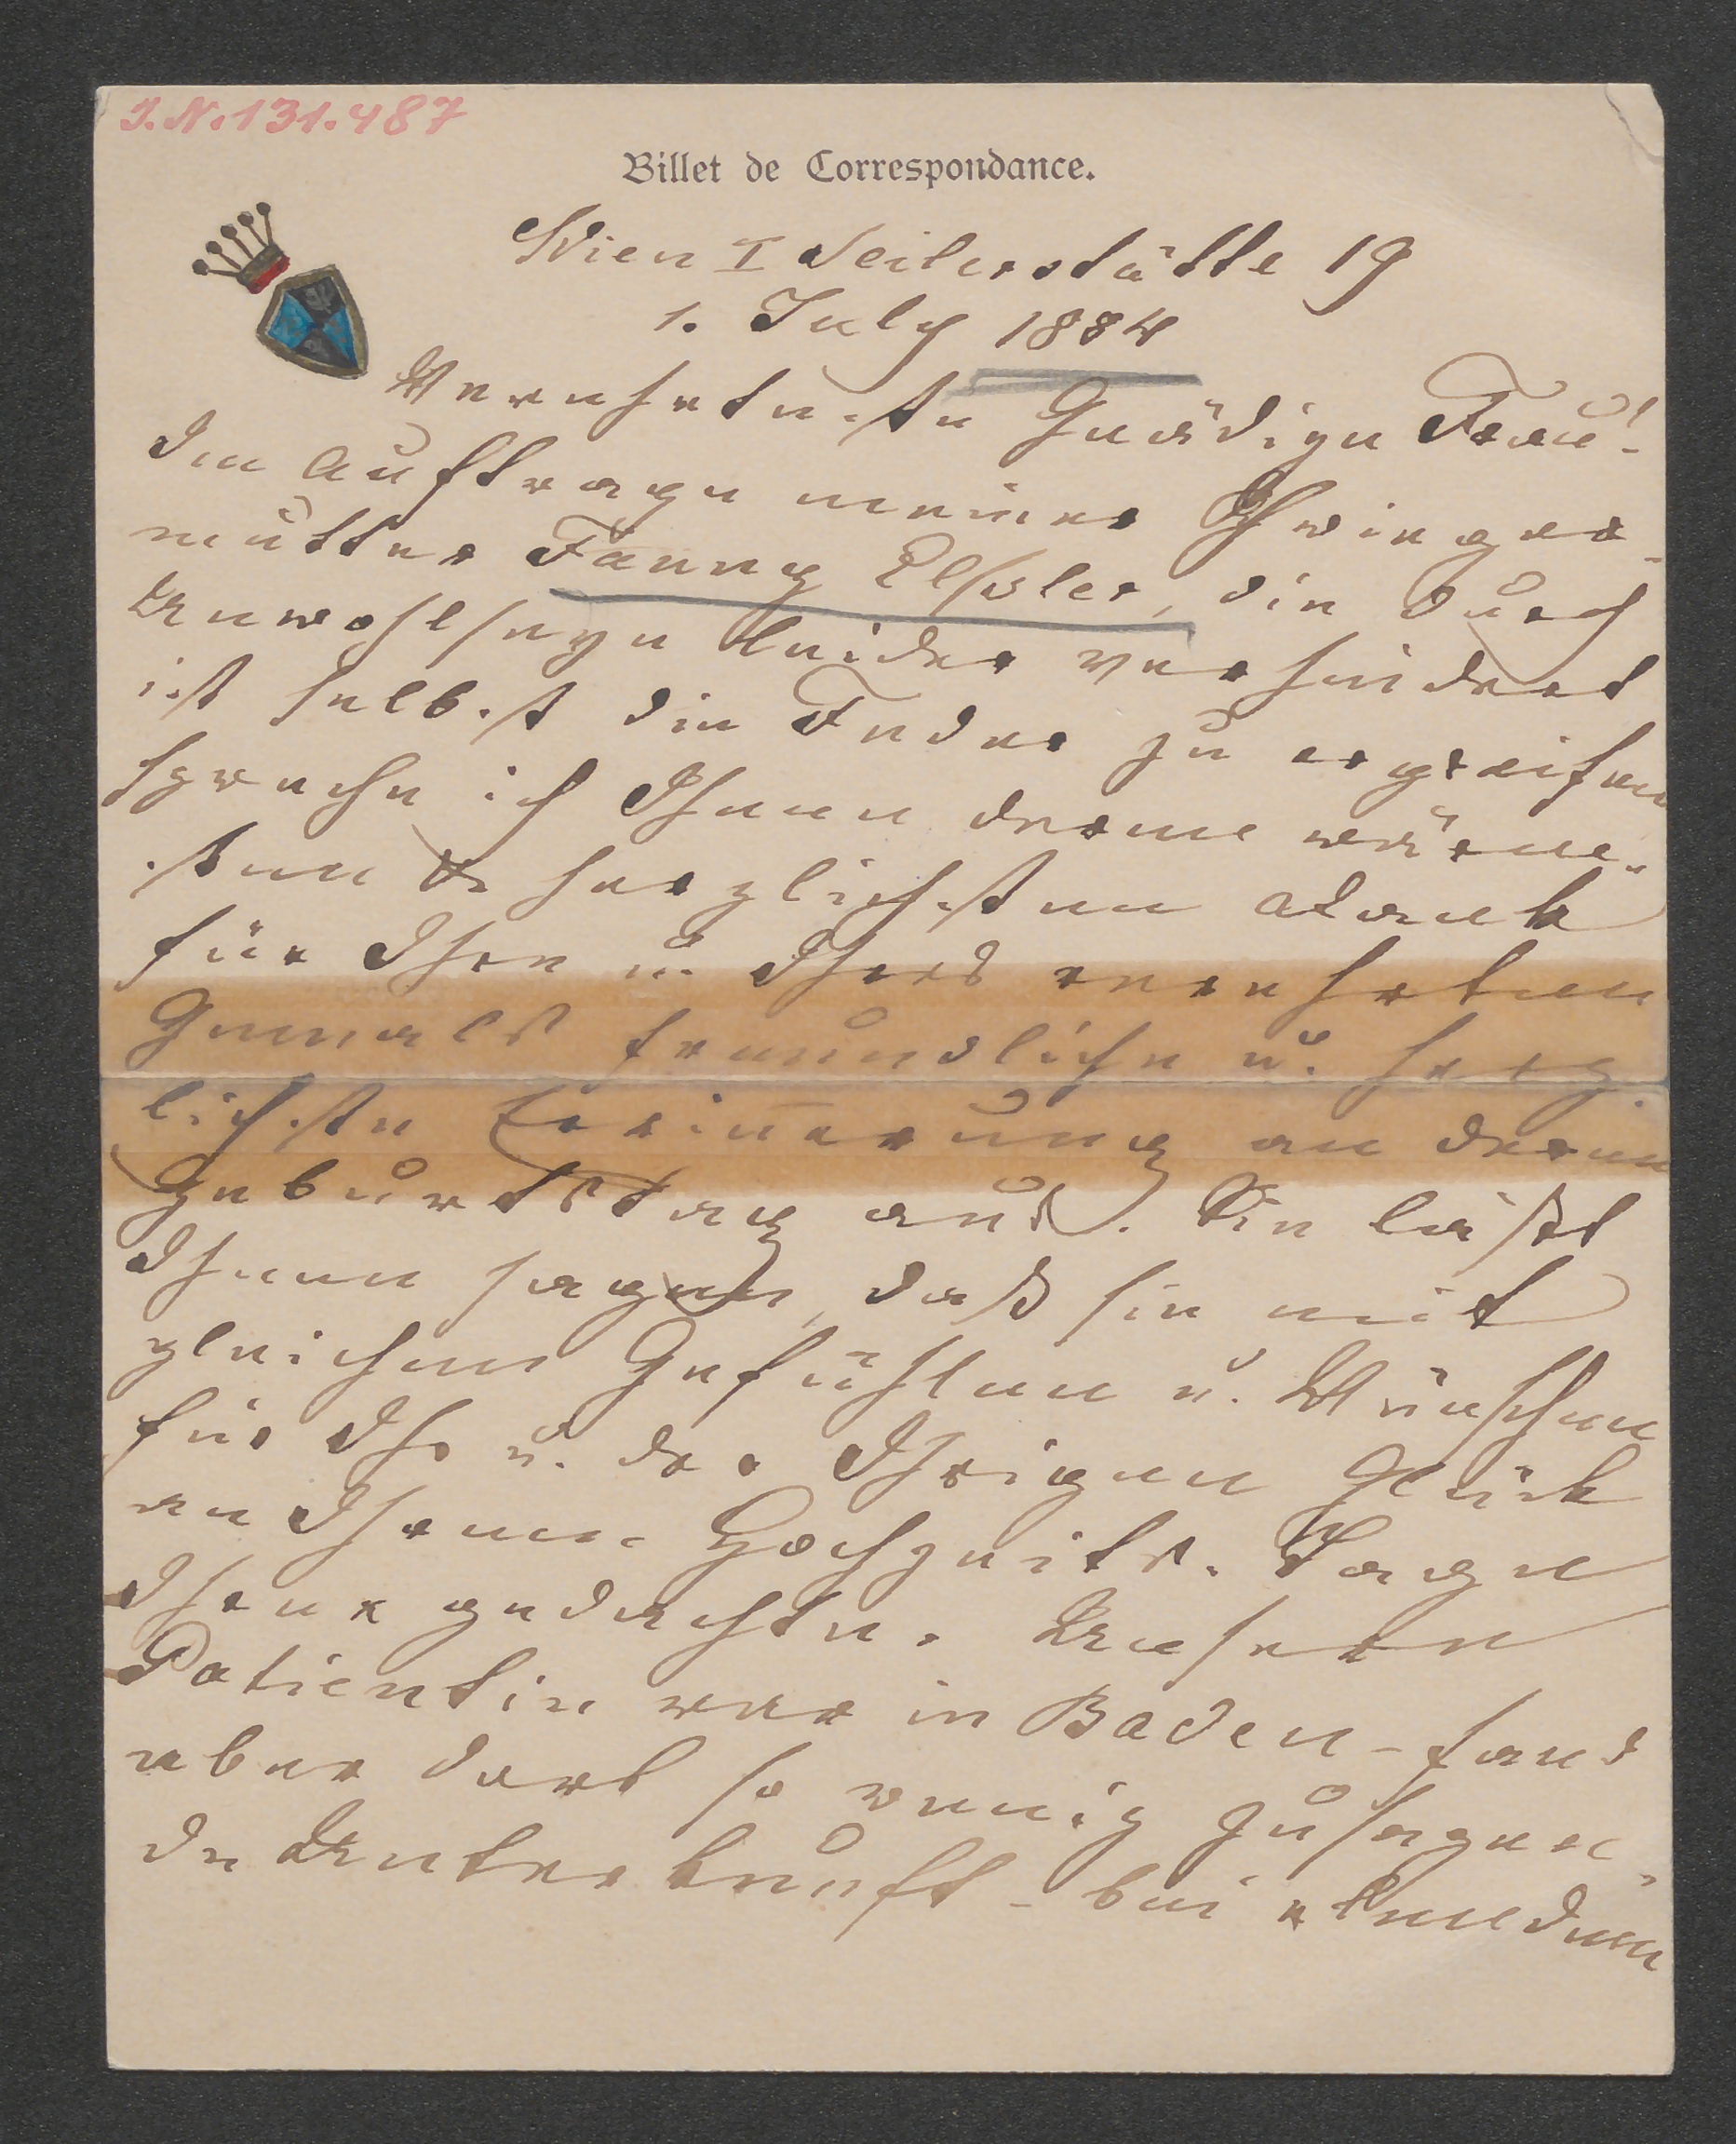 I.N. 131.487
Billet de Correspondance.
Wien I Seilerstätte 19
1. July 1884
Verehrteste Gnädige Frau!
Im Auftrage meiner Schwieger-
mutter Fanny Elßsler, die durch
Unwohlseyn leider verhindert
ist selbst die Feder zu ergreifen
spreche ich Ihnen deren wärm-
sten & herzlichsten Dank
für Ihre u. Ihres verehrten
Gemals freundliche u. herz-
lichste Erinnerung an deren
Geburtstag aus. Sie läßt
Ihnen sagen, daß sie mit
gleichen Gefühlen u. Wünschen
für Ihr u. der Ihrigen Glück
an Ihrem Hochzeits-Tage
Ihrer gedachte. Unsere
Patientin war in Baden – fand
aber dort so wenig zusagen-
de Unterkunft – bei